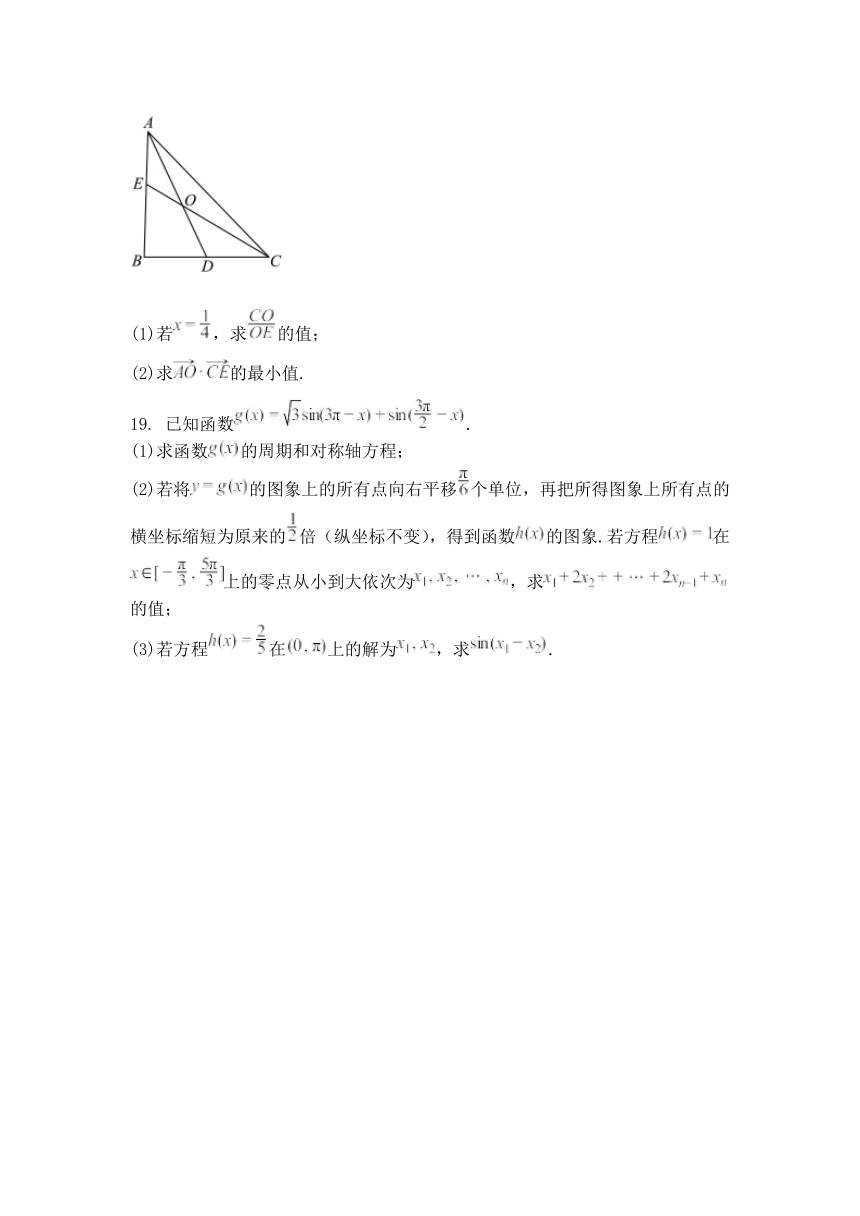 A
E
O
B
D
C
(1)若x=1/4,求CO/OE的值;
(2)求AO·CE的最小值.
19. 已知函数g(x)=√3sin(3π-x)+sin(3π/2-x).
(1)求函数g(x)的周期和对称轴方程;
(2)若将y=g(x)的图象上的所有点向右平移π/6个单位,再把所得图象上所有点的
横坐标缩短为原来的1/2倍(纵坐标不变),得到函数h(x)的图象.若方程h(x)=1在
x∈[-π/3,5π/3]上的零点从小到大依次为x₁,x₂,⋯,xₙ,求x₁+2x₂++⋯+2xₙ₋₁+xₙ
的值;
(3)若方程h(x)=2/5在(0,π)上的解为x₁,x₂,求sin(x₁-x₂).